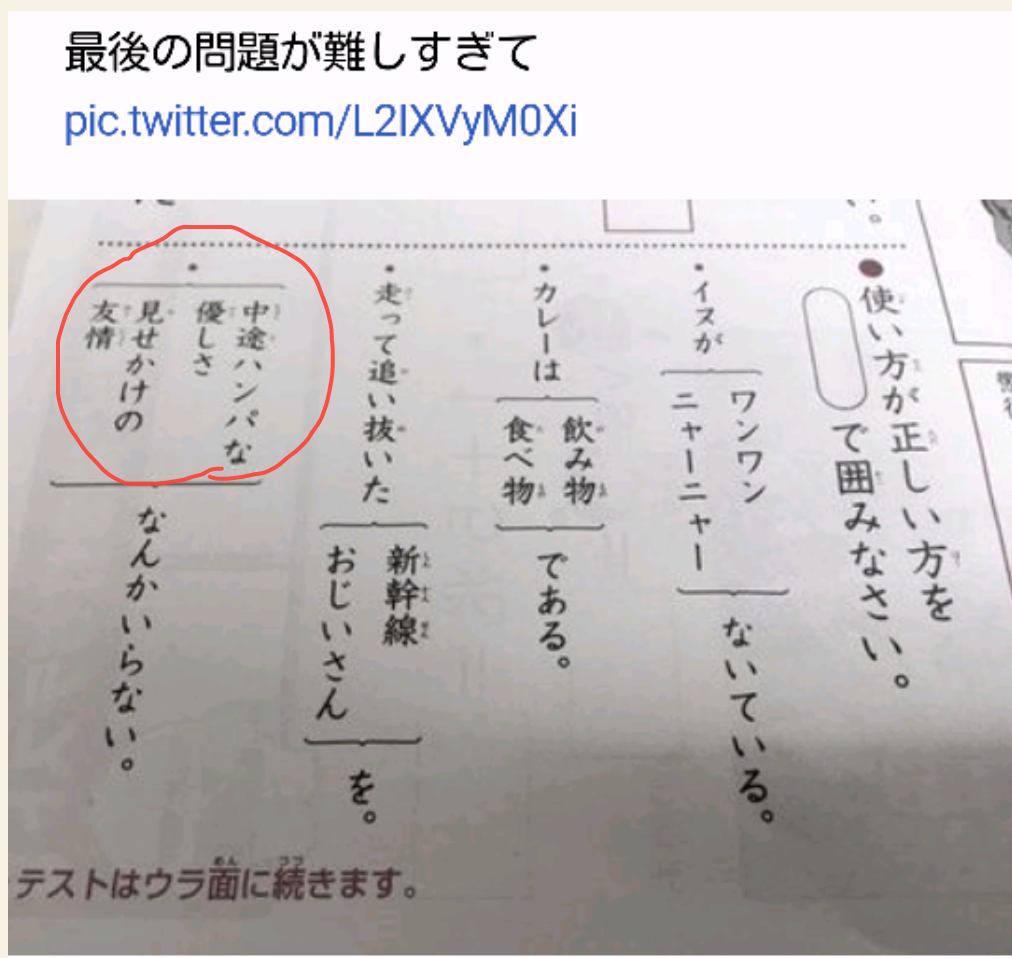 最後の問題が難しすぎて
pic.twitter.com/L2IXVyM0Xi
使い方が正しい方を
で囲みなさい。
イヌが
ワンワン
ニャーニャー
ないている。
カレーは
飲み物
食べ物
である。
走って追い抜いた
新幹線
おじいさん
を。
中途ハンパな
優しさ
見せかけの
友情
なんかいらない。
テストはウラ面に続きます。